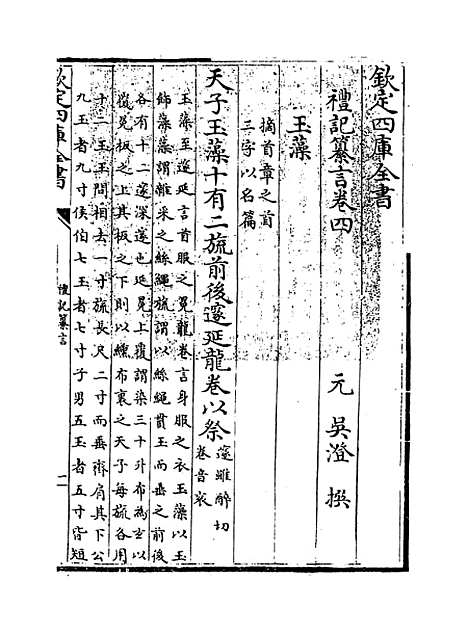 欽定四庫全書
禮記纂言卷四
元 吳澄 撰
玉藻
摘首章之首
三字以名篇
天子玉藻十有二旒前後邃延龍卷以祭
邃雖醉切
卷音衮
玉藻至邃延言首服之冕龍卷言身服之衣玉藻以玉
飾藻藻謂雜采之絲繩旒謂以絲繩貫玉而垂之前後
各有十二邃深邃也延冕上覆謂染三十升布為玄以
覆冕板之上其板之下則以纁布裏之天子每旒各用
十二玉玉間相去一寸旒長尺二寸而垂齊肩其下公
九玉者九寸侯伯七玉者七寸子男五玉者五寸皆短
欽定四庫全書
禮記纂言
一